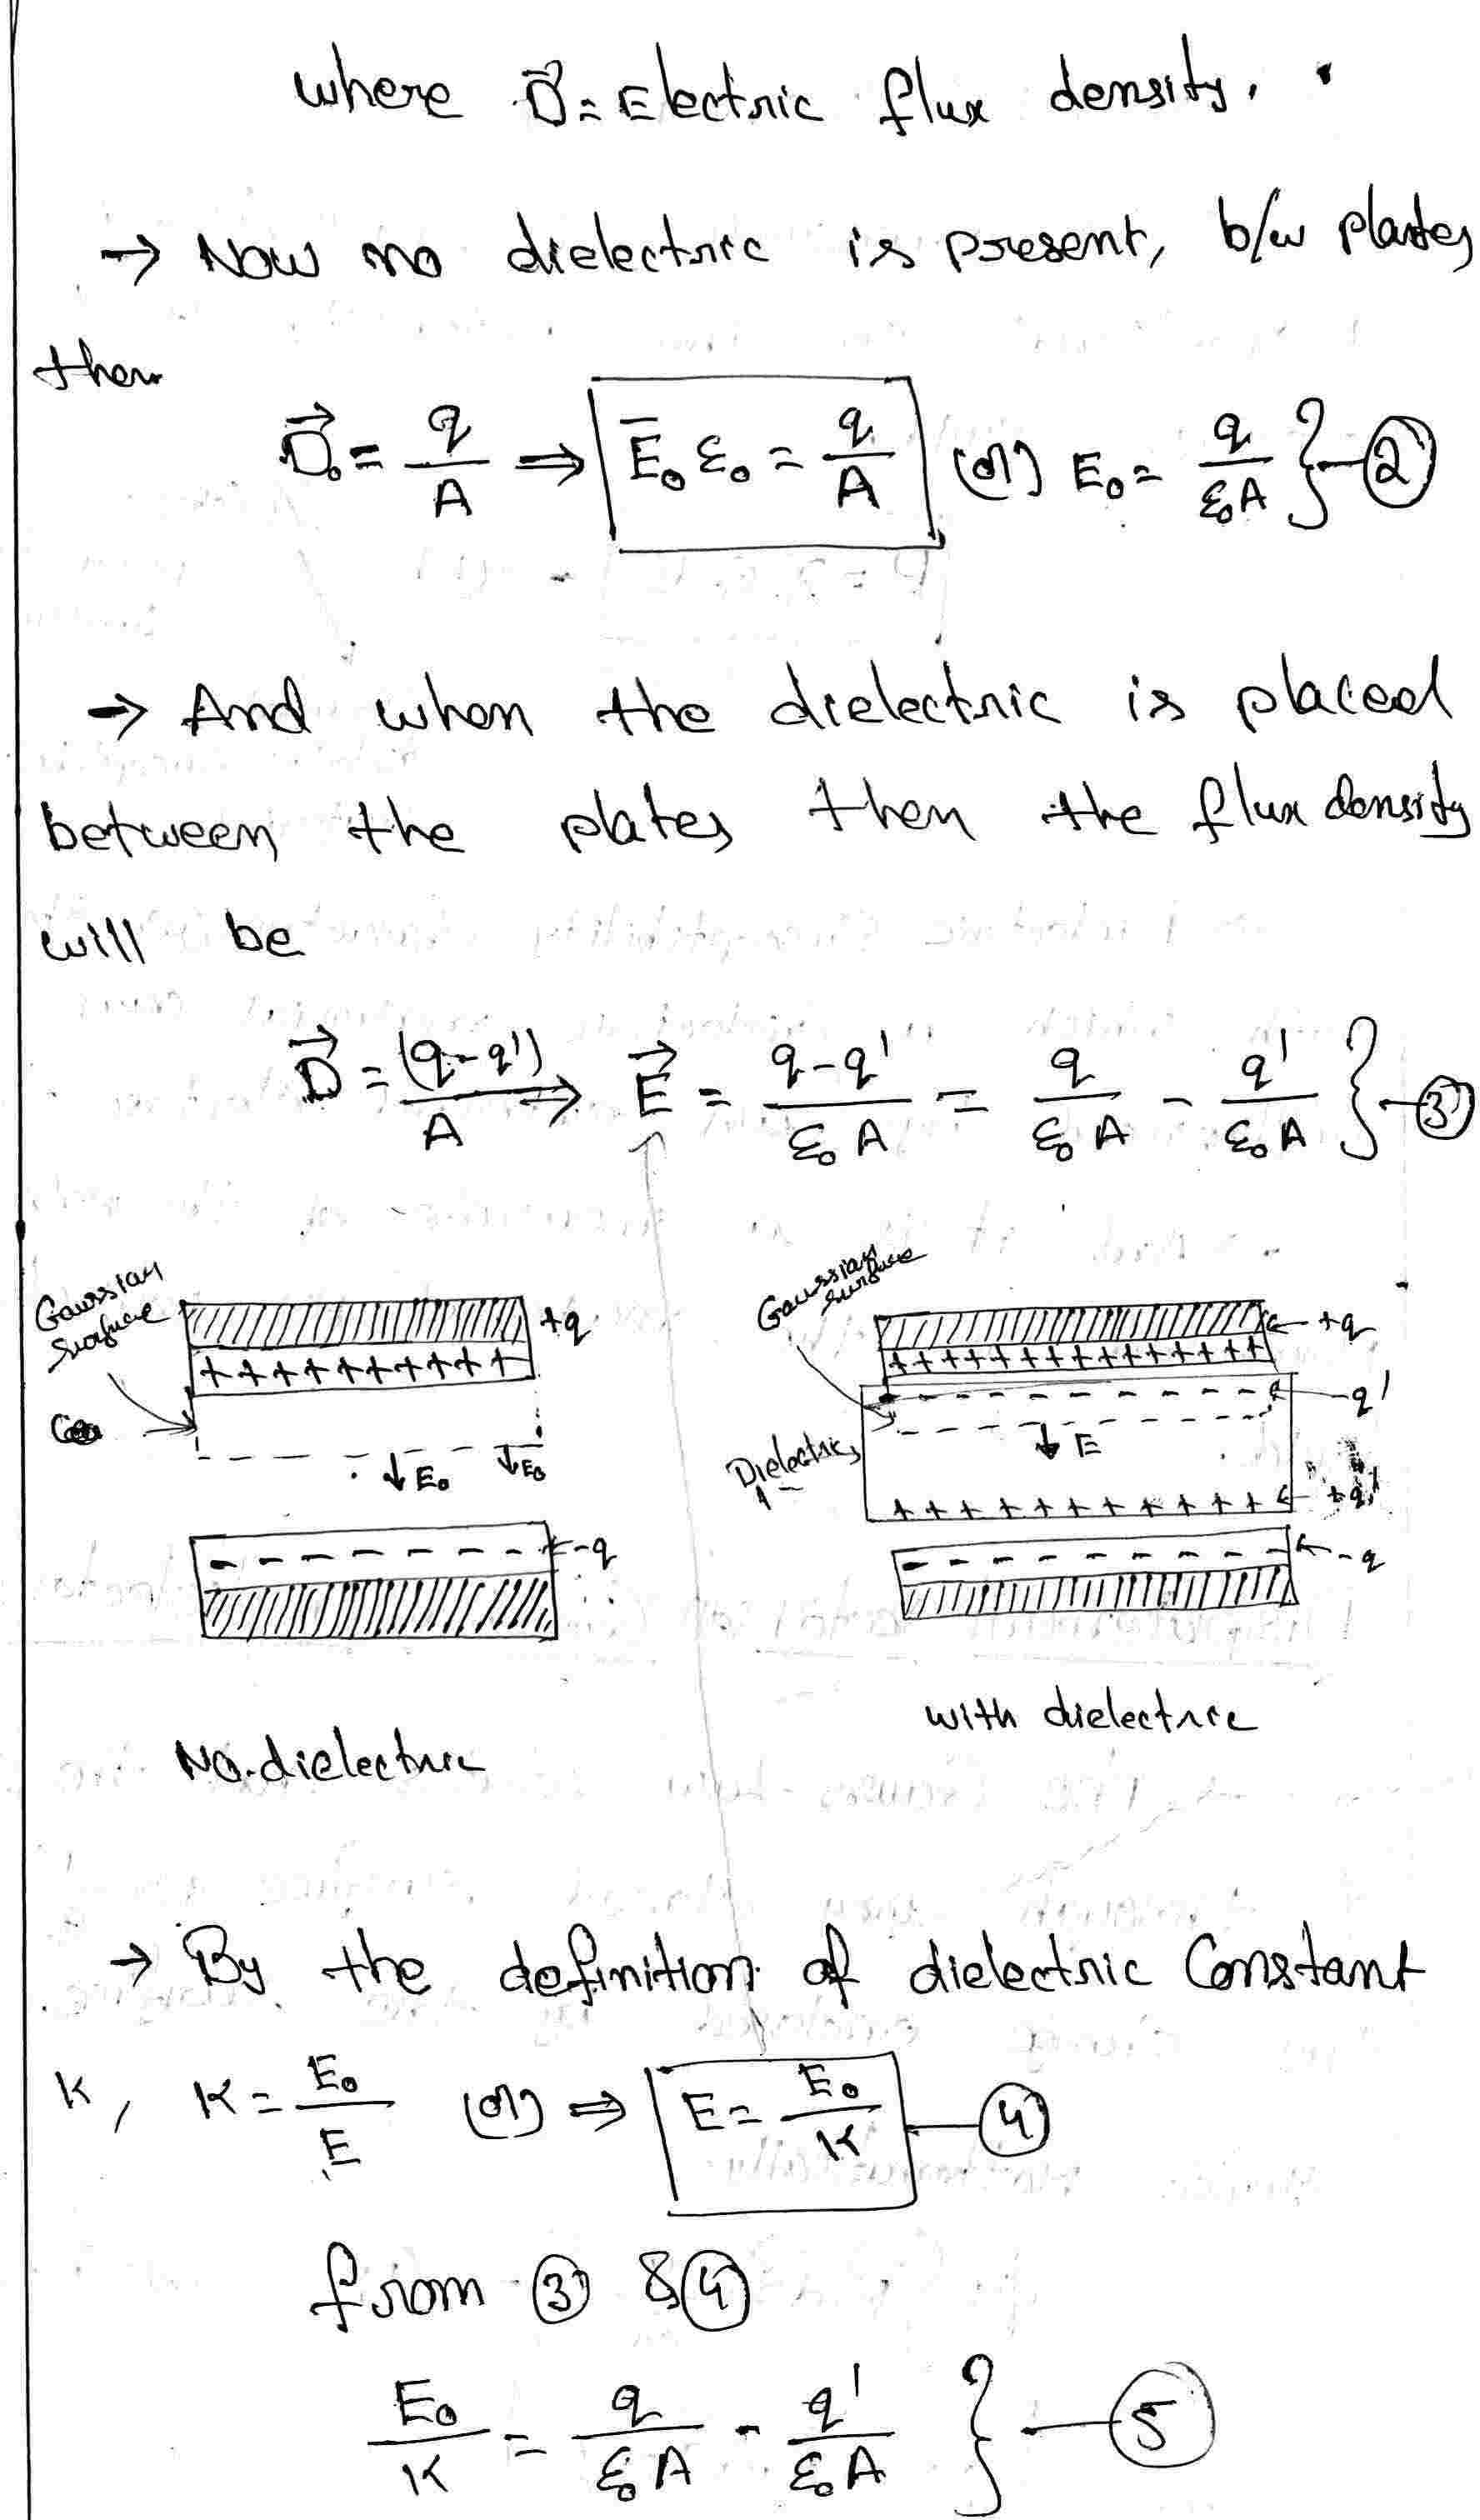 where D⃗ = Electric flux density.
→ Now no dielectric is present, b/w plates
then
D⃗₀ = q/A ⇒ E̅₀ ε₀ = q/A (or) E₀ = q/ε₀A } — ②
→ And when the dielectric is placed
between the plates then the flux density
will be
D⃗ = (q-q')/A ⇒ E⃗ = q-q'/ε₀A = q/ε₀A - q'/ε₀A } — ③
Gaussian
surface
+q
+ + + + + + + + +
↓ E₀ ↓ E₀
- - - - - - - -q
No. dielectric
Gaussian
surface
+q
+ + + + + + + + + + + + + + +
- - - - - - - - - -q'
Dielectric
↓ E
+ + + + + + + + + + + +q'
- - - - - - - - - -q
with dielectric
→ By the definition of dielectric Constant
K, K = E₀/E (or) ⇒ E = E₀/K — ④
from ③ & ④
E₀/K = q/ε₀A - q'/ε₀A } — ⑤